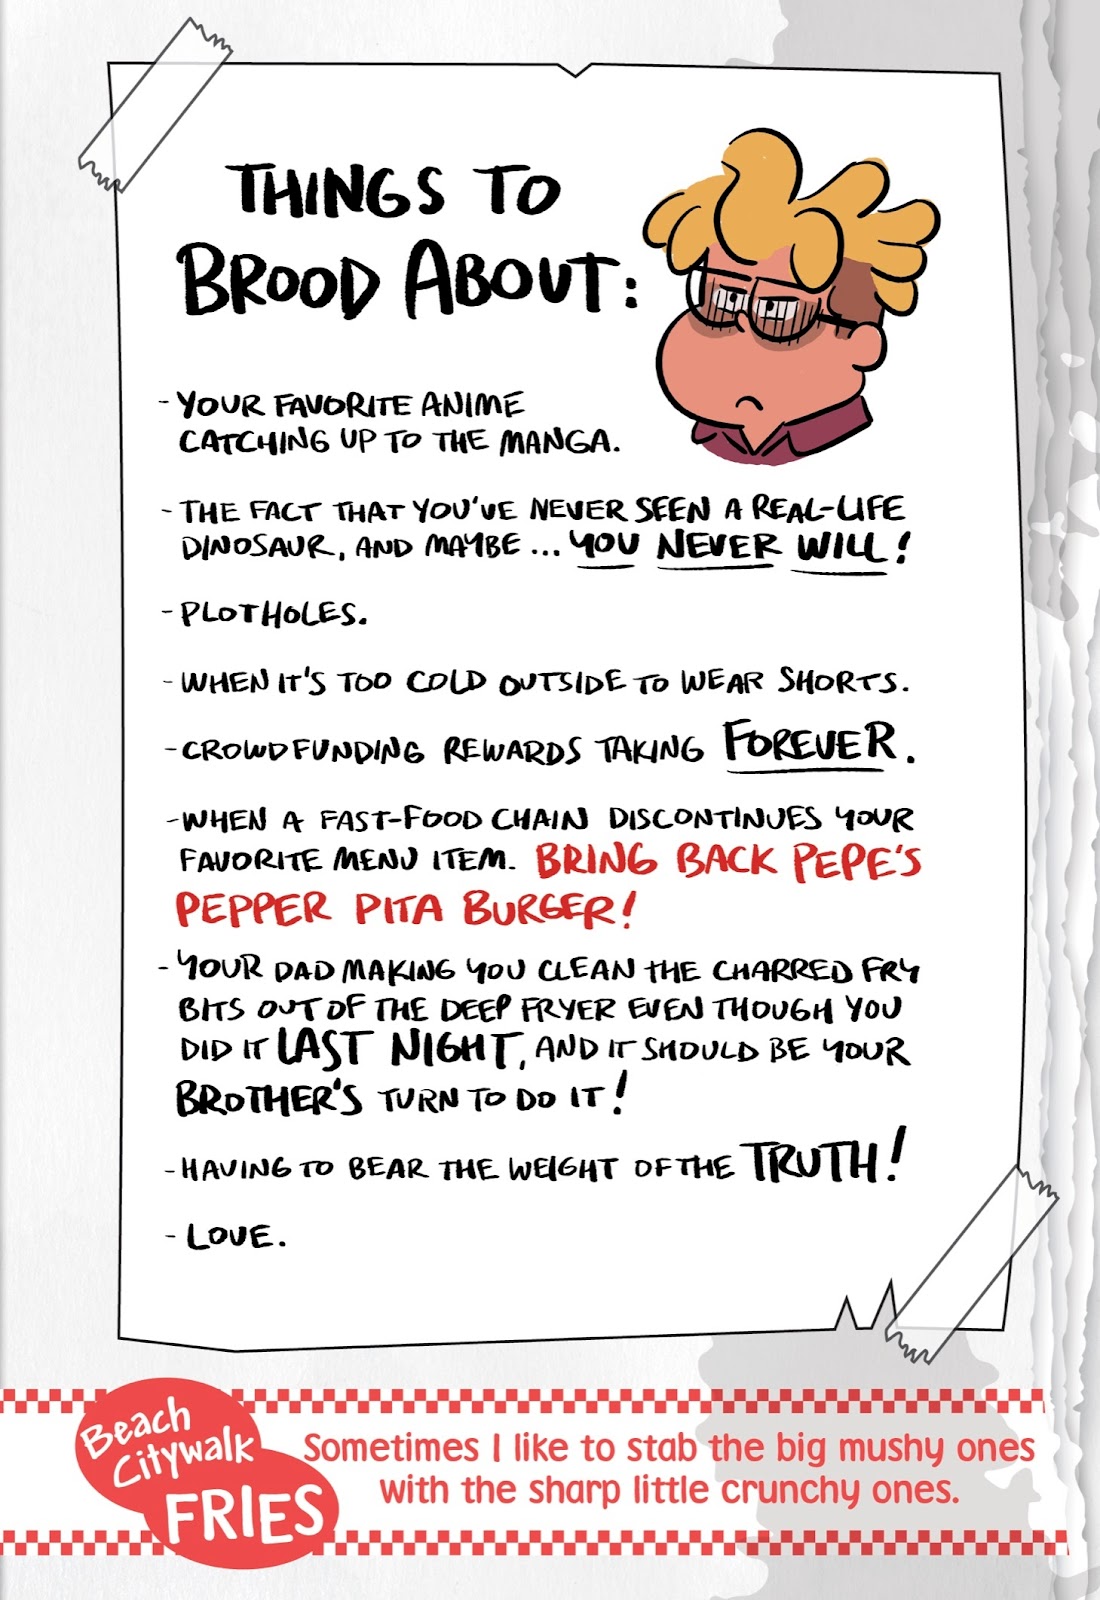 THINGS TO
BROOD ABOUT:
- YOUR FAVORITE ANIME
CATCHING UP TO THE MANGA.
- THE FACT THAT YOU'VE NEVER SEEN A REAL-LIFE
DINOSAUR, AND MAYBE... YOU NEVER WILL!
- PLOTHOLES.
- WHEN IT'S TOO COLD OUTSIDE TO WEAR SHORTS.
- CROWDFUNDING REWARDS TAKING FOREVER.
- WHEN A FAST-FOOD CHAIN DISCONTINUES YOUR
FAVORITE MENU ITEM. BRING BACK PEPE'S
PEPPER PITA BURGER!
- YOUR DAD MAKING YOU CLEAN THE CHARRED FRY
BITS OUT OF THE DEEP FRYER EVEN THOUGH YOU
DID IT LAST NIGHT, AND IT SHOULD BE YOUR
BROTHER'S TURN TO DO IT!
- HAVING TO BEAR THE WEIGHT OF THE TRUTH!
- LOVE.
Beach
Citywalk
FRIES
Sometimes I like to stab the big mushy ones
with the sharp little crunchy ones.